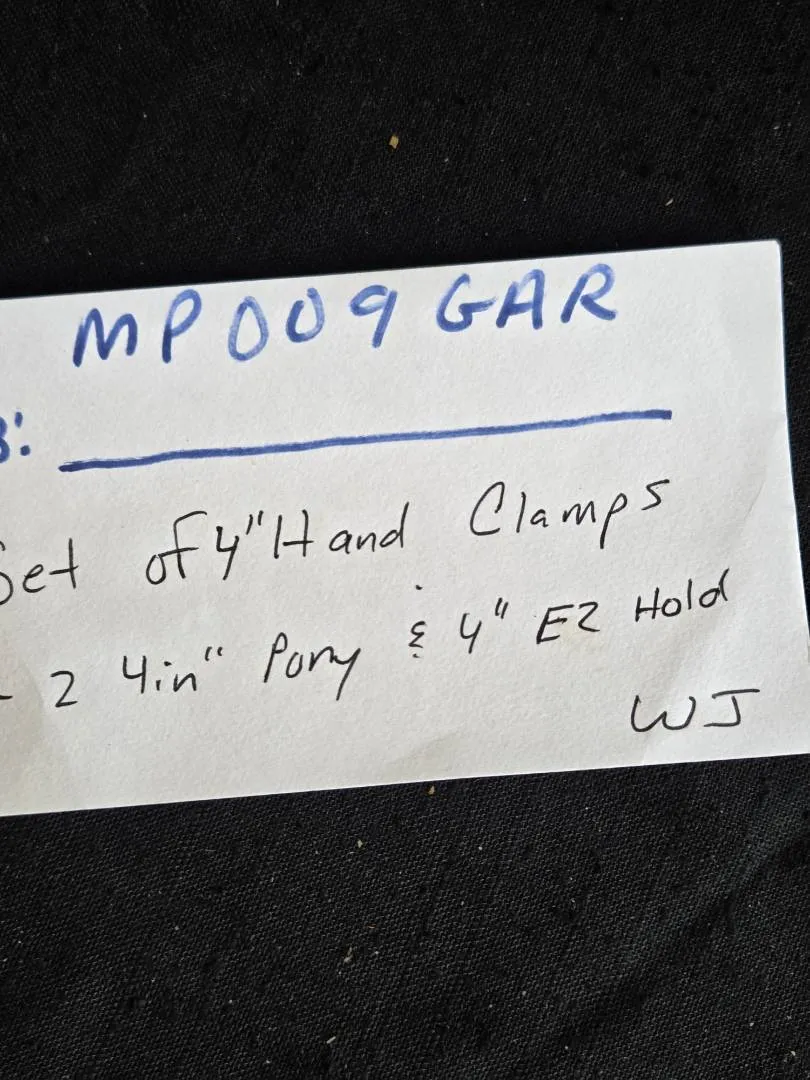 MP009 GAR
B:
Set of 4" Hand Clamps
- 2 4in" Pony & 4" EZ Hold
WJ